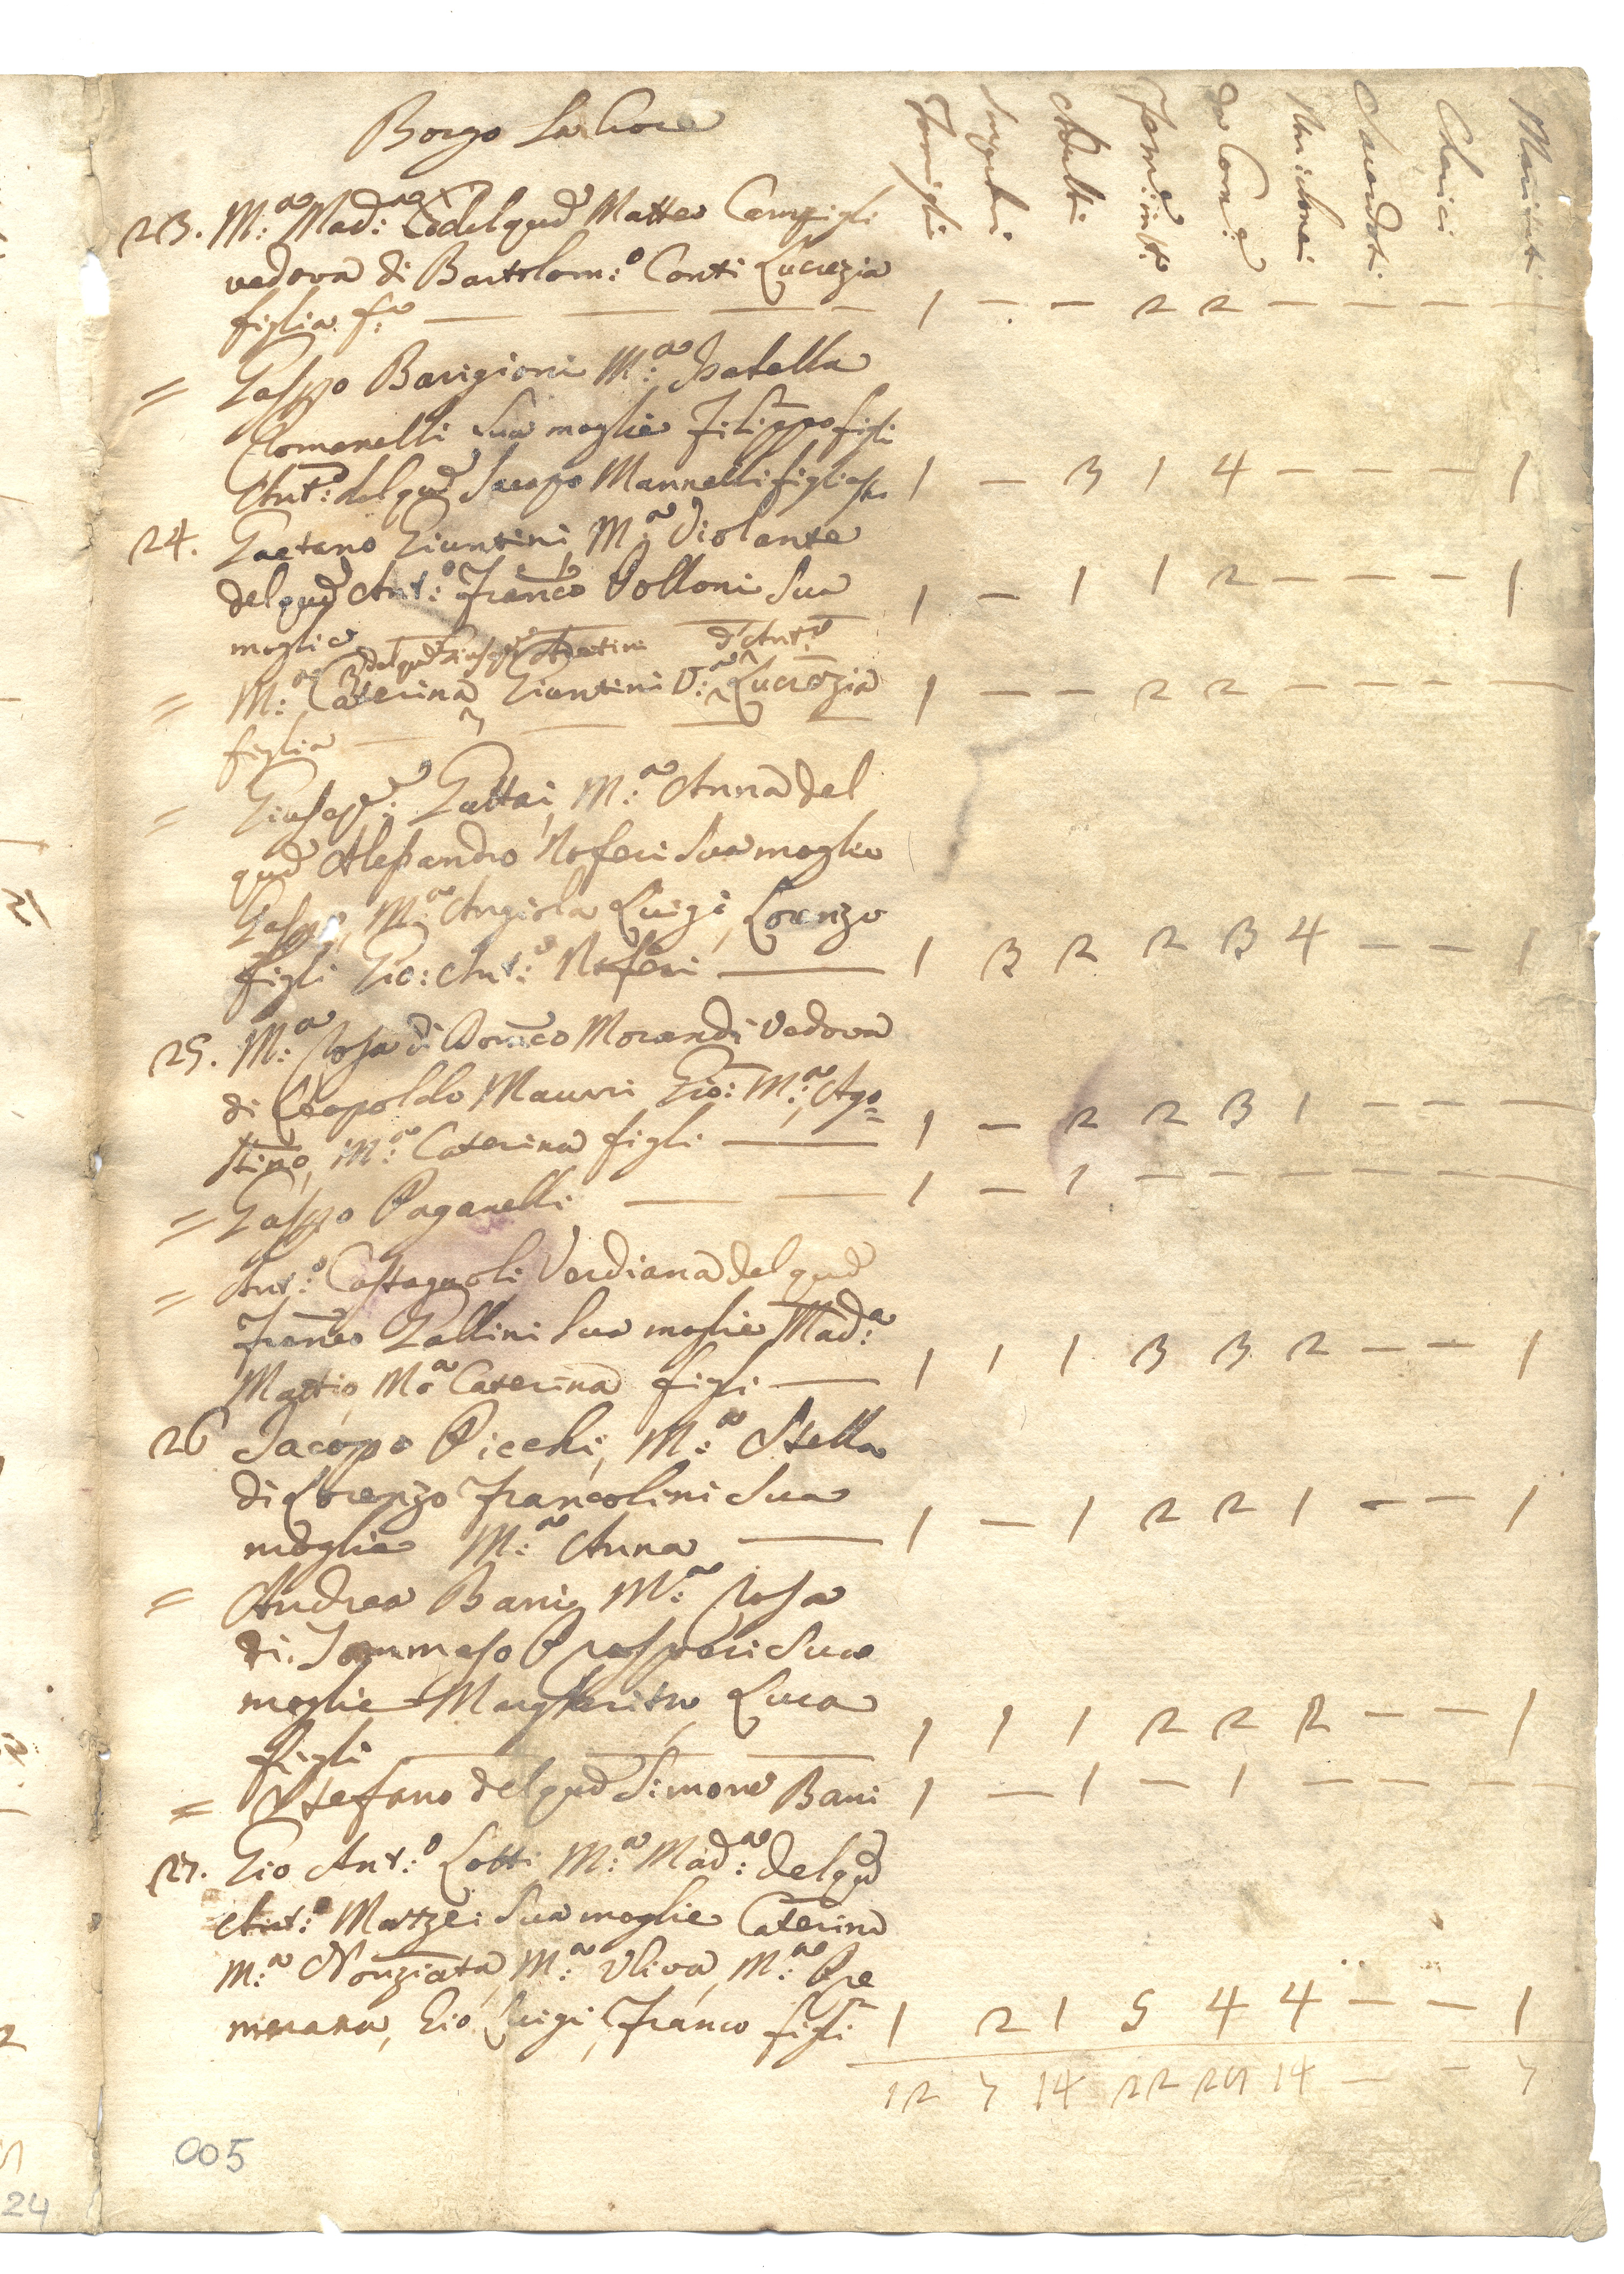 Borgo La Croce
Famiglie
Adulti
Femine
da Com:e
Sacerdoti
Cherici
Mariti
23. M:a Mad:a del qud Matteo Campigli
vedova di Bartolom:o Conti Lucrezia
figlia — — — — 1 - - 2 2 - - - -
= Gasppo Barigioni M:a Isabella
Romanelli Sua moglie Filippo figli
Ant:o del qud Jacopo Mannelli figliasto 1 - 3 1 4 - - - 1
24. Gaetano Giuntini, M:a Violante
del qud Ant:o Franco Polloni Sua 1 - 1 1 2 - - - 1
moglie
del qud d'Ant:o
= M:a Caterina Giuntini V:a Lucrezia 1 - - 2 2 - - - -
figlia — — — —
= Giusepe: Gattai, M:a Anna del
qud Alessandro Noferi Sua moglie
Gasppo, M:a Angiola Luigi, Lorenzo
figli Gio: Ant:o Noferi — 1 3 2 2 3 4 - - 1
25. M:a Rosa di Domco Morandi Vedova
di Leopoldo Maurri Gio: M:a, Ago=
stino, M:a Caterina figli — 1 - 2 2 3 1 - - -
= Gasppo Paganelli — — 1 - 1 - - - - - -
= Ant:o Castagnoli Verdiana del qud
Franco Gallini Sua moglie Mad:a
Mattio, M:a Caterina figli — 1 1 1 3 3 2 - - 1
26 Jacopo Picchi, M:a Stella
di Lorenzo Francolini Sua
moglie M:a Anna — 1 - 1 2 2 1 - - 1
= Andrea Bani, M:a Rosa
di Tommaso Prosperi Sua
moglie Margherita, Luca
figli — — — 1 1 1 2 2 2 - - 1
= Stefano del qud Simone Bani 1 - 1 - 1 - - - -
27. Gio Ant:o Lotti M:a Mad:a del qd
Ant:o Mazzei Sua moglie Caterina
M:a Nonziata, M:a Uliva, M:a Pre
merana, Gio Luigi, Franco figli 1 2 1 5 4 4 - - 1
12 7 14 22 14 - - 7
005
24